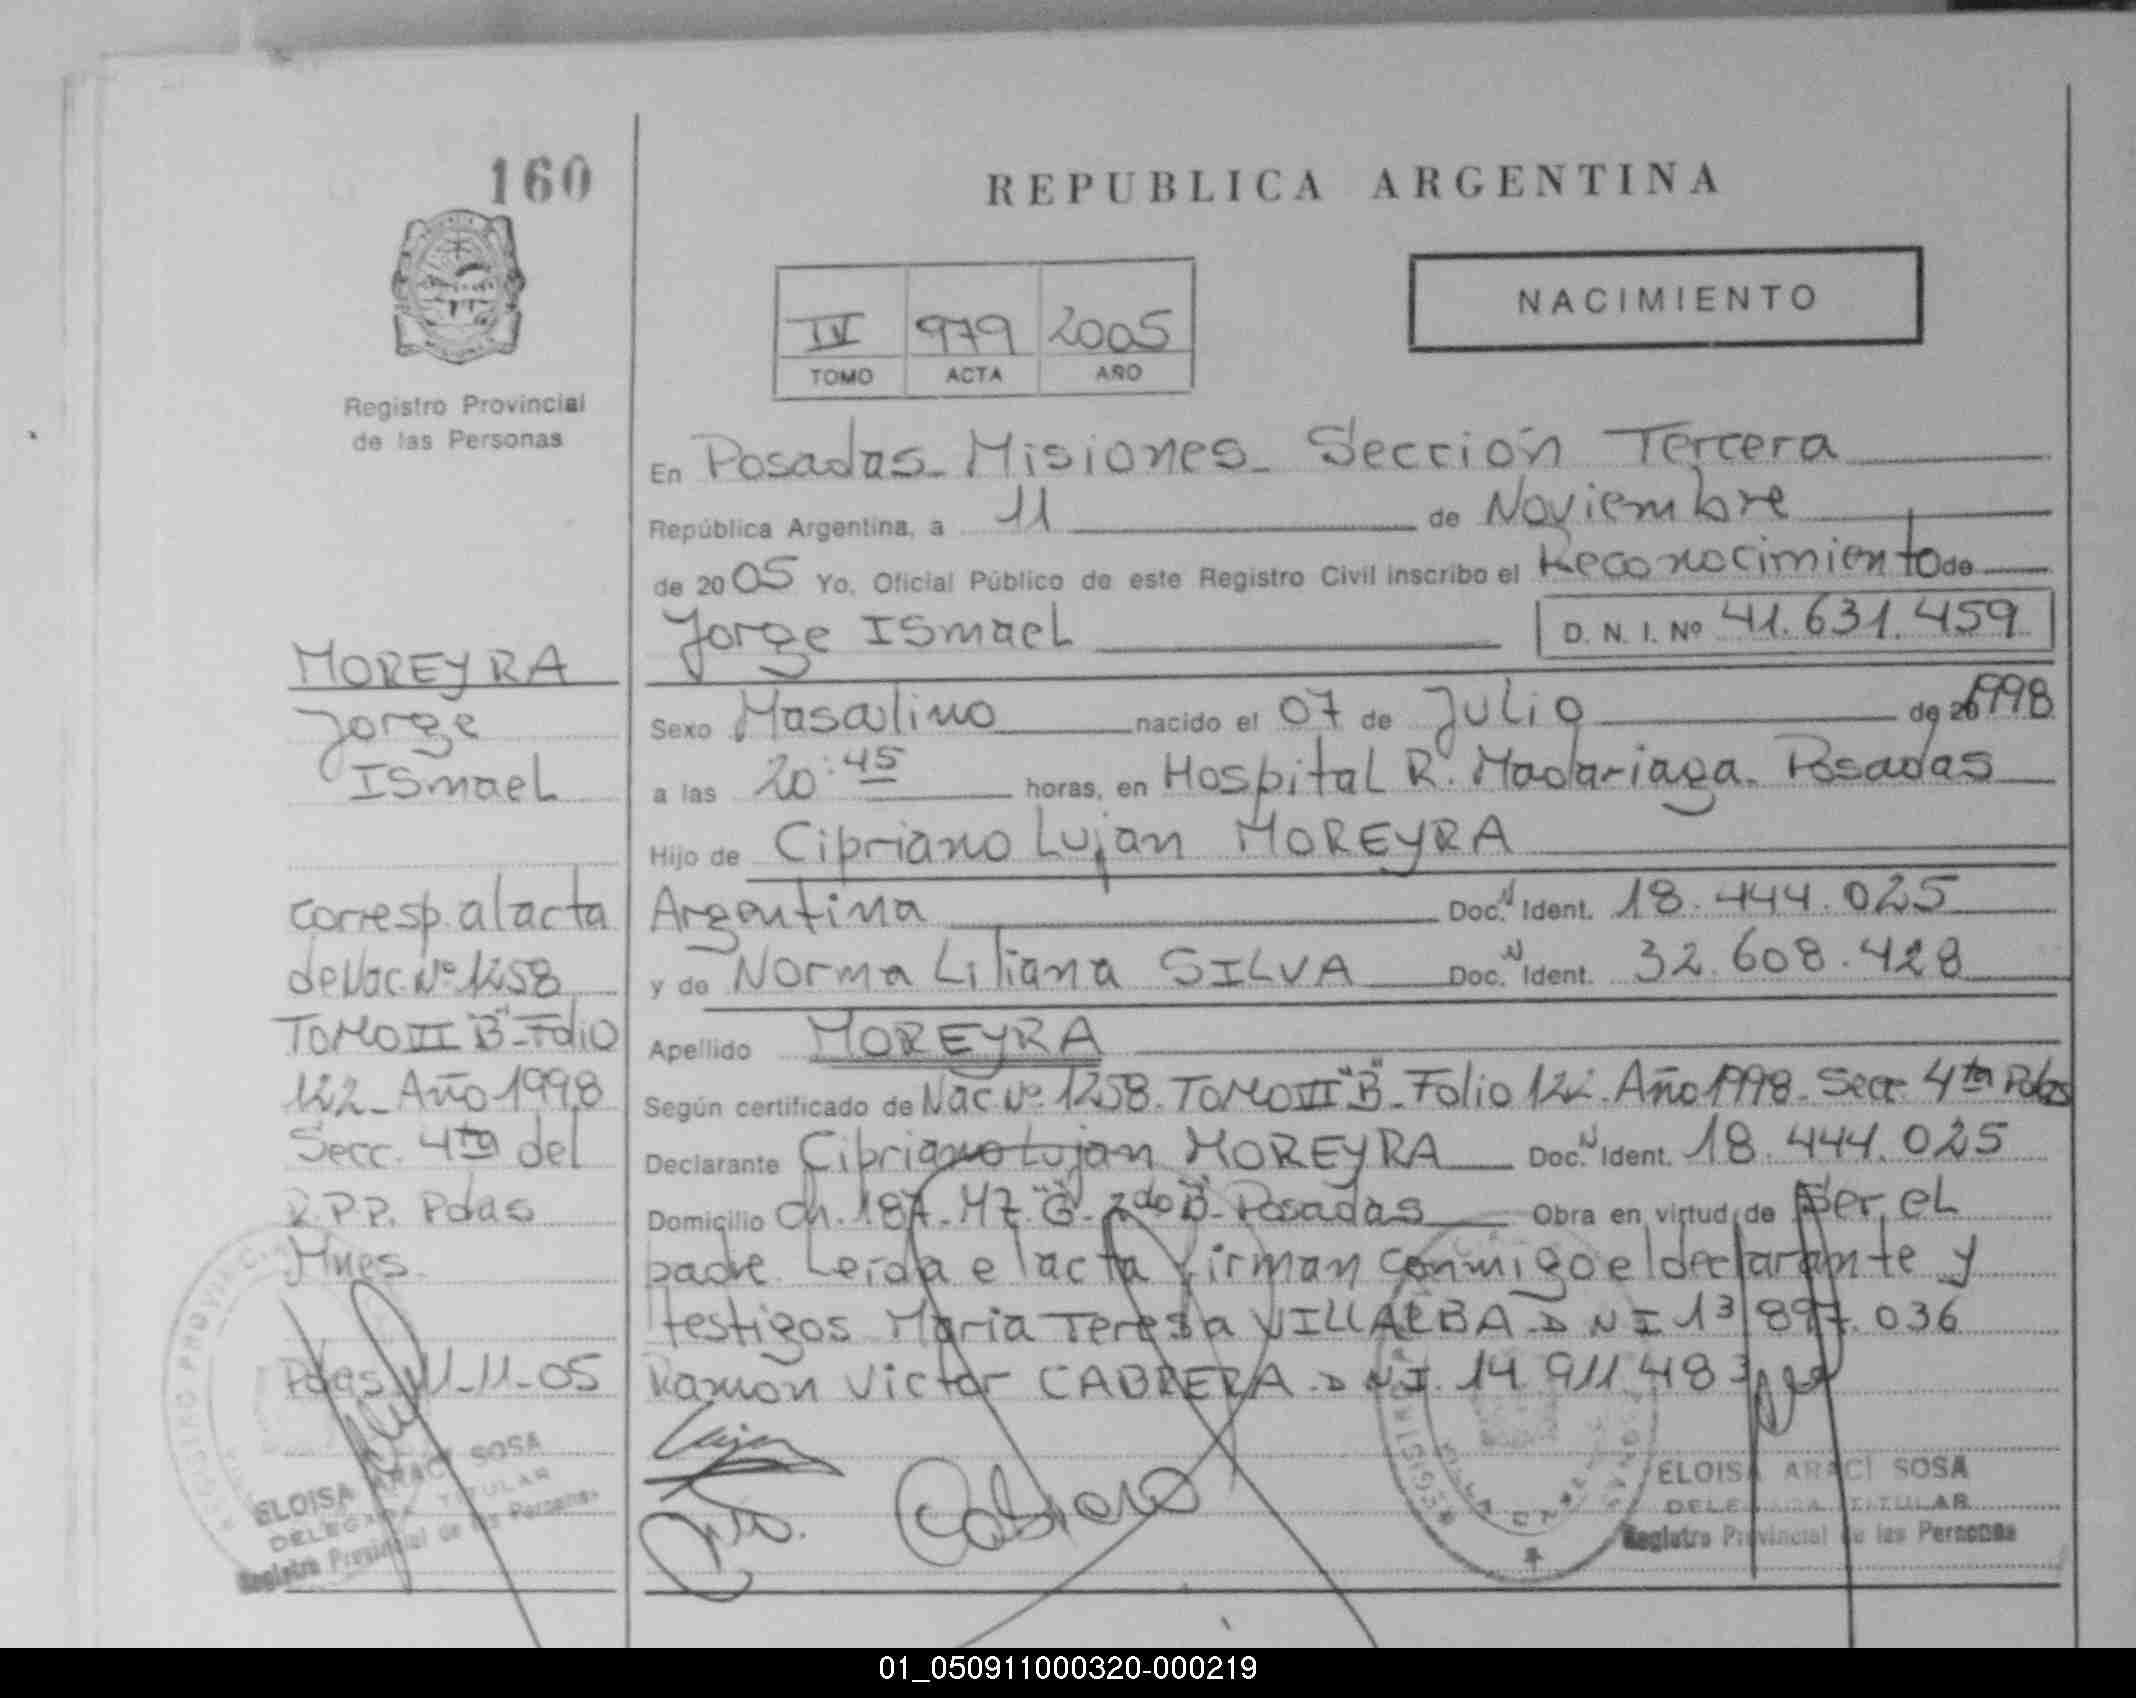 160
REPUBLICA ARGENTINA
NACIMIENTO
IV 979 2005
TOMO ACTA AÑO
Registro Provincial
de las Personas
En Posadas - Misiones - Sección Tercera
República Argentina, a 11 de Noviembre
de 2005 Yo, Oficial Público de este Registro Civil inscribo el Reconocimiento de
Jorge Ismael D. N. I. Nº 41.631.459
Sexo Masculino nacido el 07 de Julio de 1998
a las 20:45 horas, en Hospital R. Madariaga. Posadas
Hijo de Cipriano Lujan MOREYRA
Argentina Doc. N Ident. 18.444.025
y de Norma Liliana SILVA Doc. N Ident. 32.608.428
Apellido MOREYRA
Según certificado de Nac Nº 1258. Tomo III "B" - Folio 122. Año 1998. Secc. 4ta Pdas
Declarante Cipriano Lujan MOREYRA Doc. N Ident. 18.444.025
Domicilio Ch. 187. Mz. "G" 2do "B" - Posadas Obra en virtud de ser el
padre. Leída el acta firman conmigo el declarante y
testigos Maria Teresa VILLALBA D N I 13.897.036
Ramón Victor CABRERA D N I. 14.911.483
MOREYRA
Jorge
Ismael
corresp. al acta
de Nac. Nº 1258
Tomo III "B" - Folio
122 - Año 1998
Secc. 4ta del
R.P.P. Pdas
Mnes.
Pdas 11-11-05
ELOISA ARACI SOSA
DELEGADA TITULAR
Registro Provincial de las Personas
Lujan
Cabrera
ELOISA ARACI SOSA
DELEGADA TITULAR
Registro Provincial de las Personas
01_050911000320-000219